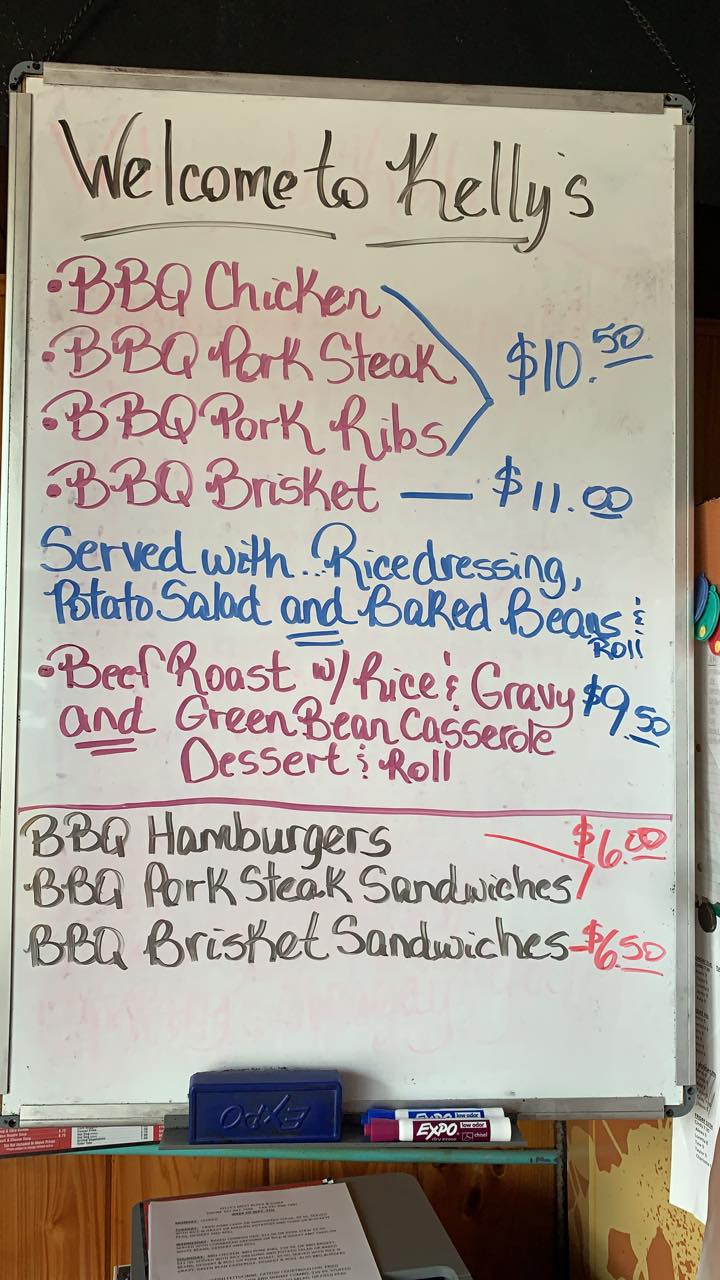 Welcome to Kelly's
• BBQ Chicken
• BBQ Pork Steak
$10.50
• BBQ Pork Ribs
• BBQ Brisket — $11.00
Served with... Rice dressing,
Potato Salad and Baked Beans &
Roll
• Beef Roast w/ Rice & Gravy $9.50
and Green Bean Casserole
Dessert & Roll
BBQ Hamburgers $6.00
BBQ Pork Steak Sandwiches
BBQ Brisket Sandwiches - $6.50
EXPO
EXPO low odor
chisel